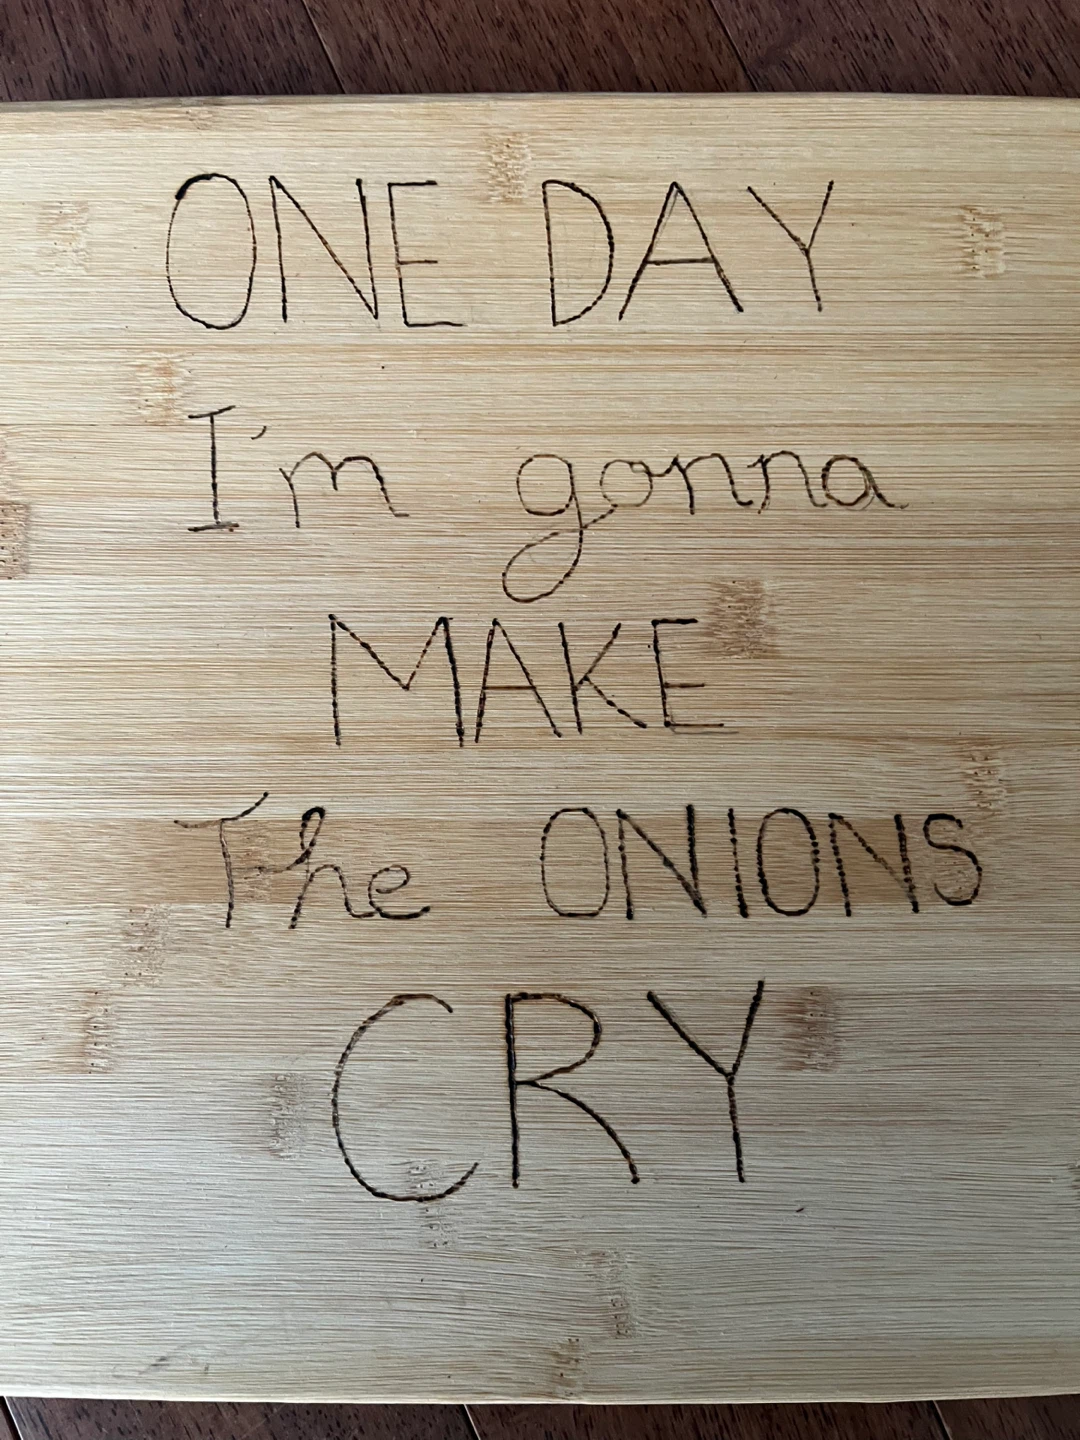 ONE DAY
I'm gonna
MAKE
The ONIONS
CRY